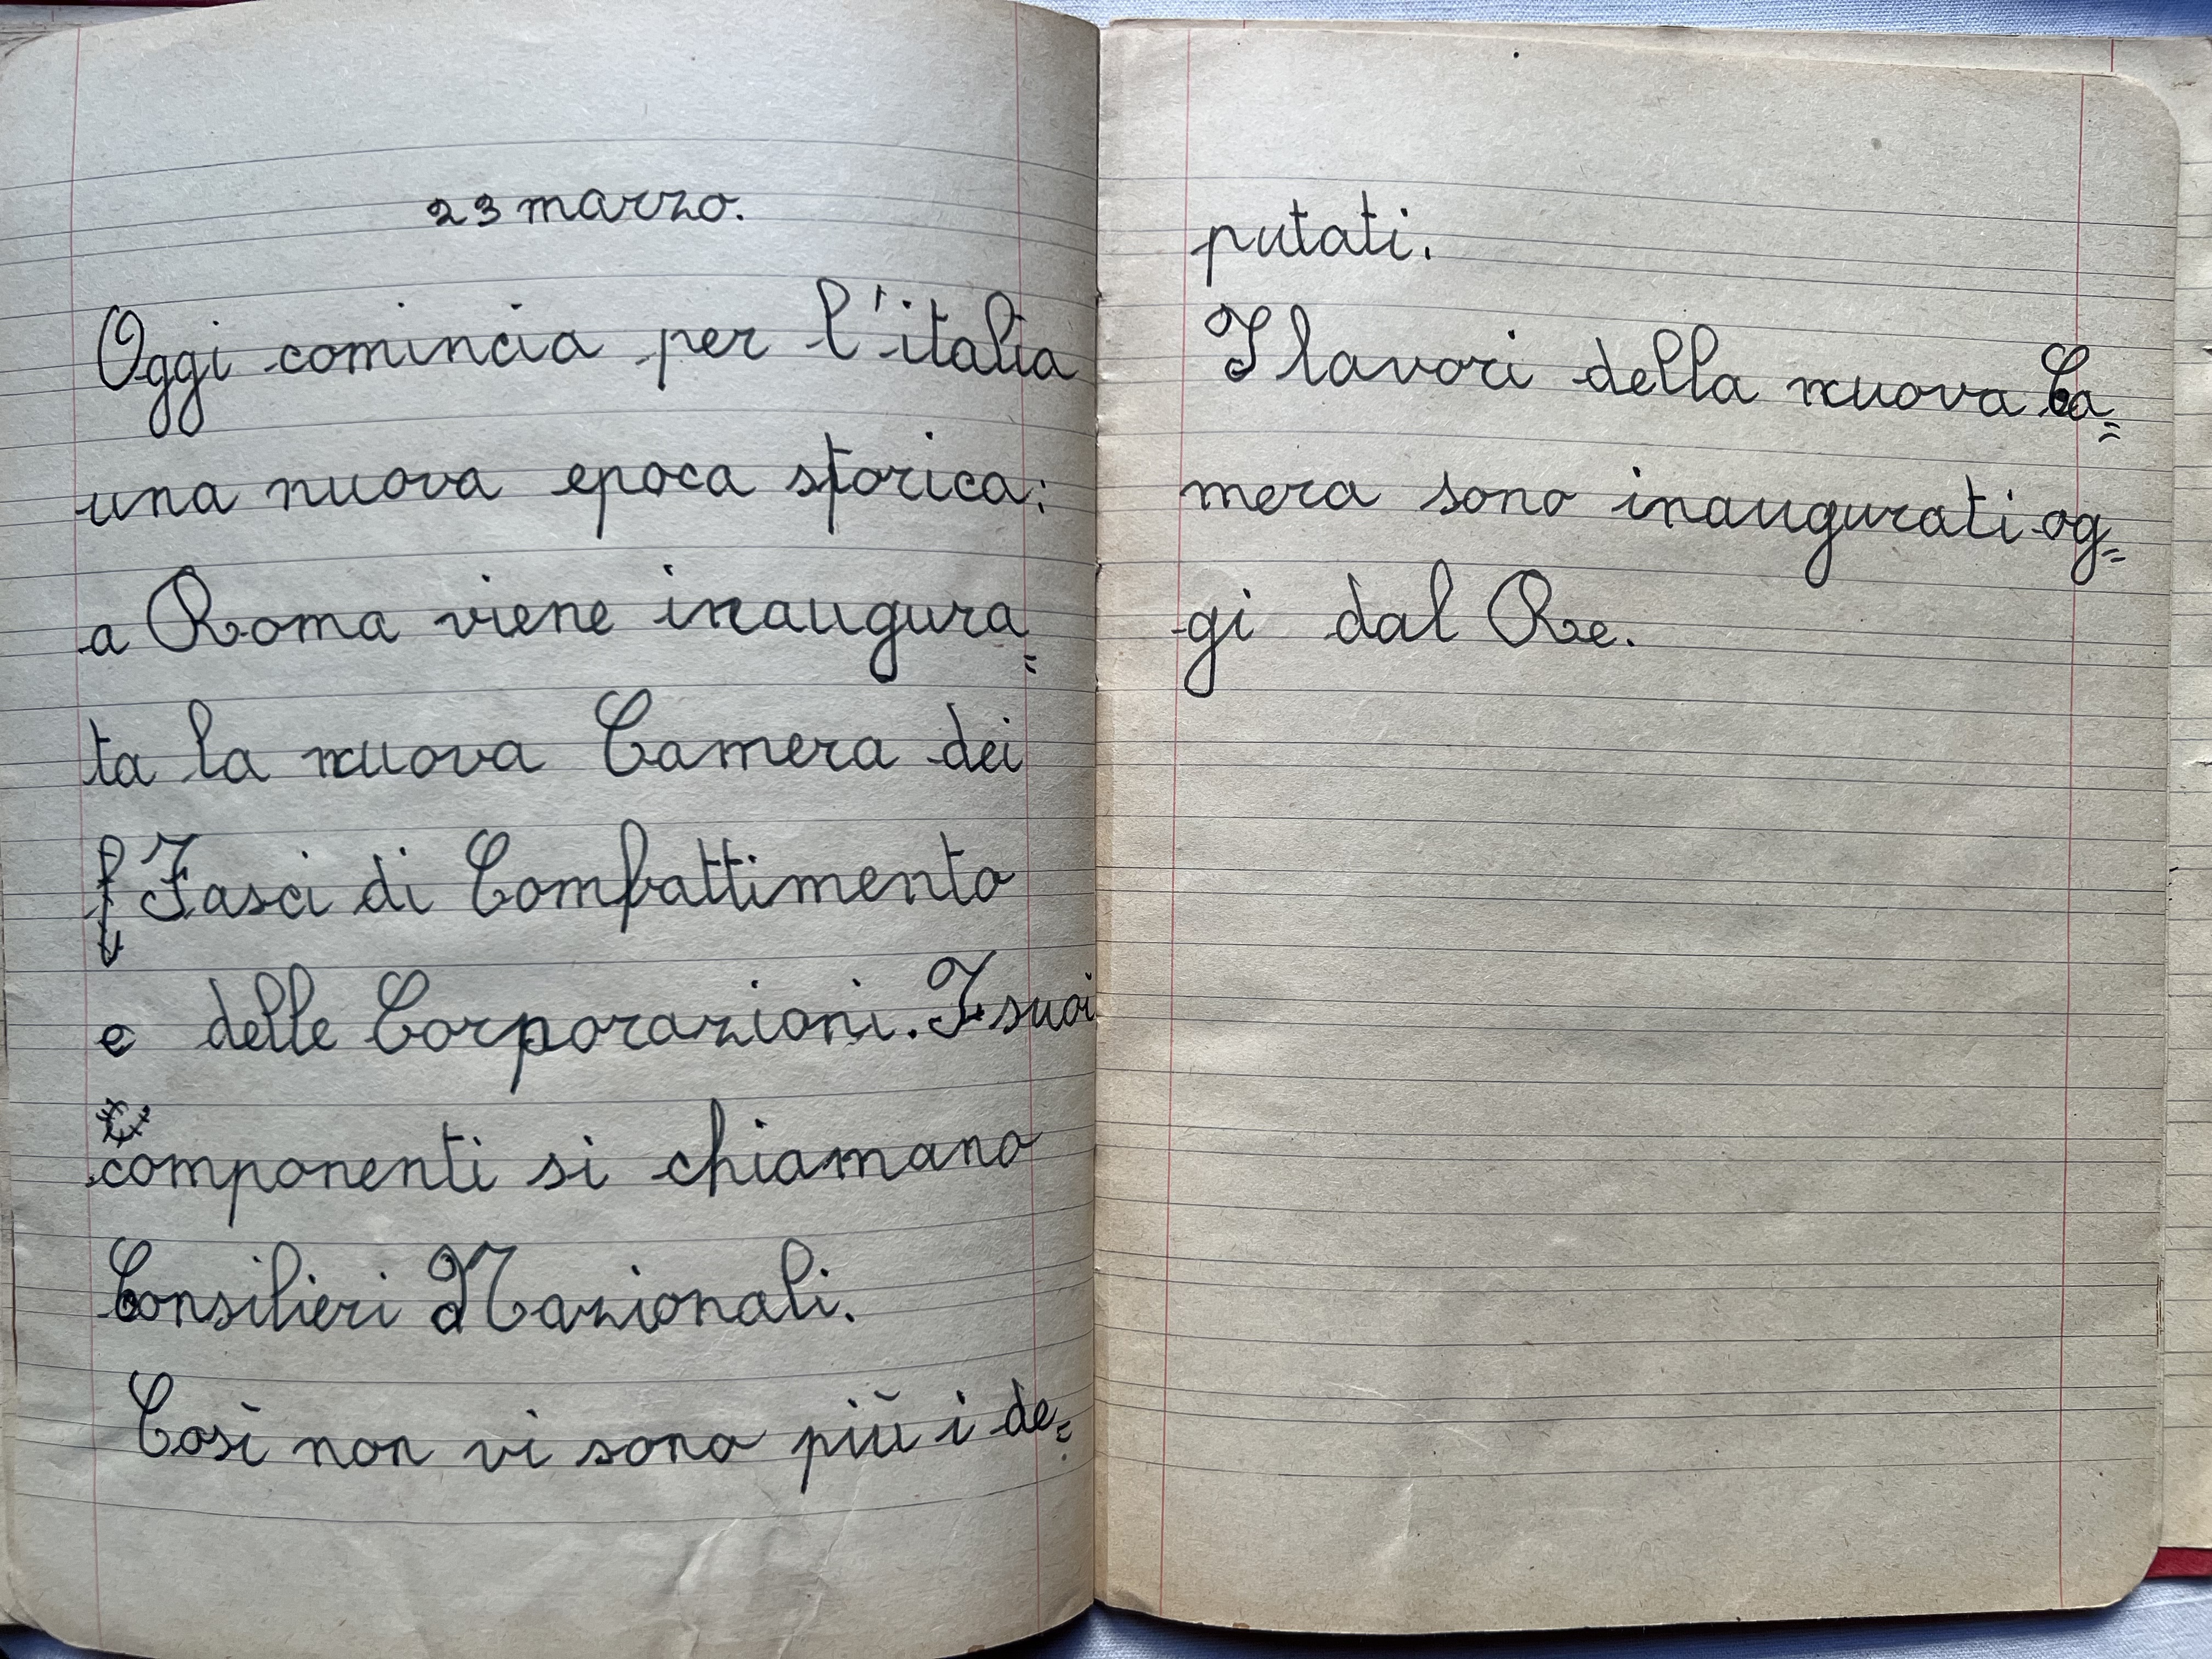 23 marzo.
Oggi comincia per l'italia
una nuova epoca storica:
a Roma viene inaugura=
ta la nuova Camera dei
f Fasci di Combattimento
e delle Corporazioni. I suoi
componenti si chiamano
Consilieri Nazionali.
Così non vi sono più i de=
putati.
I lavori della nuova Ca=
mera sono inaugurati og=
gi dal Re.